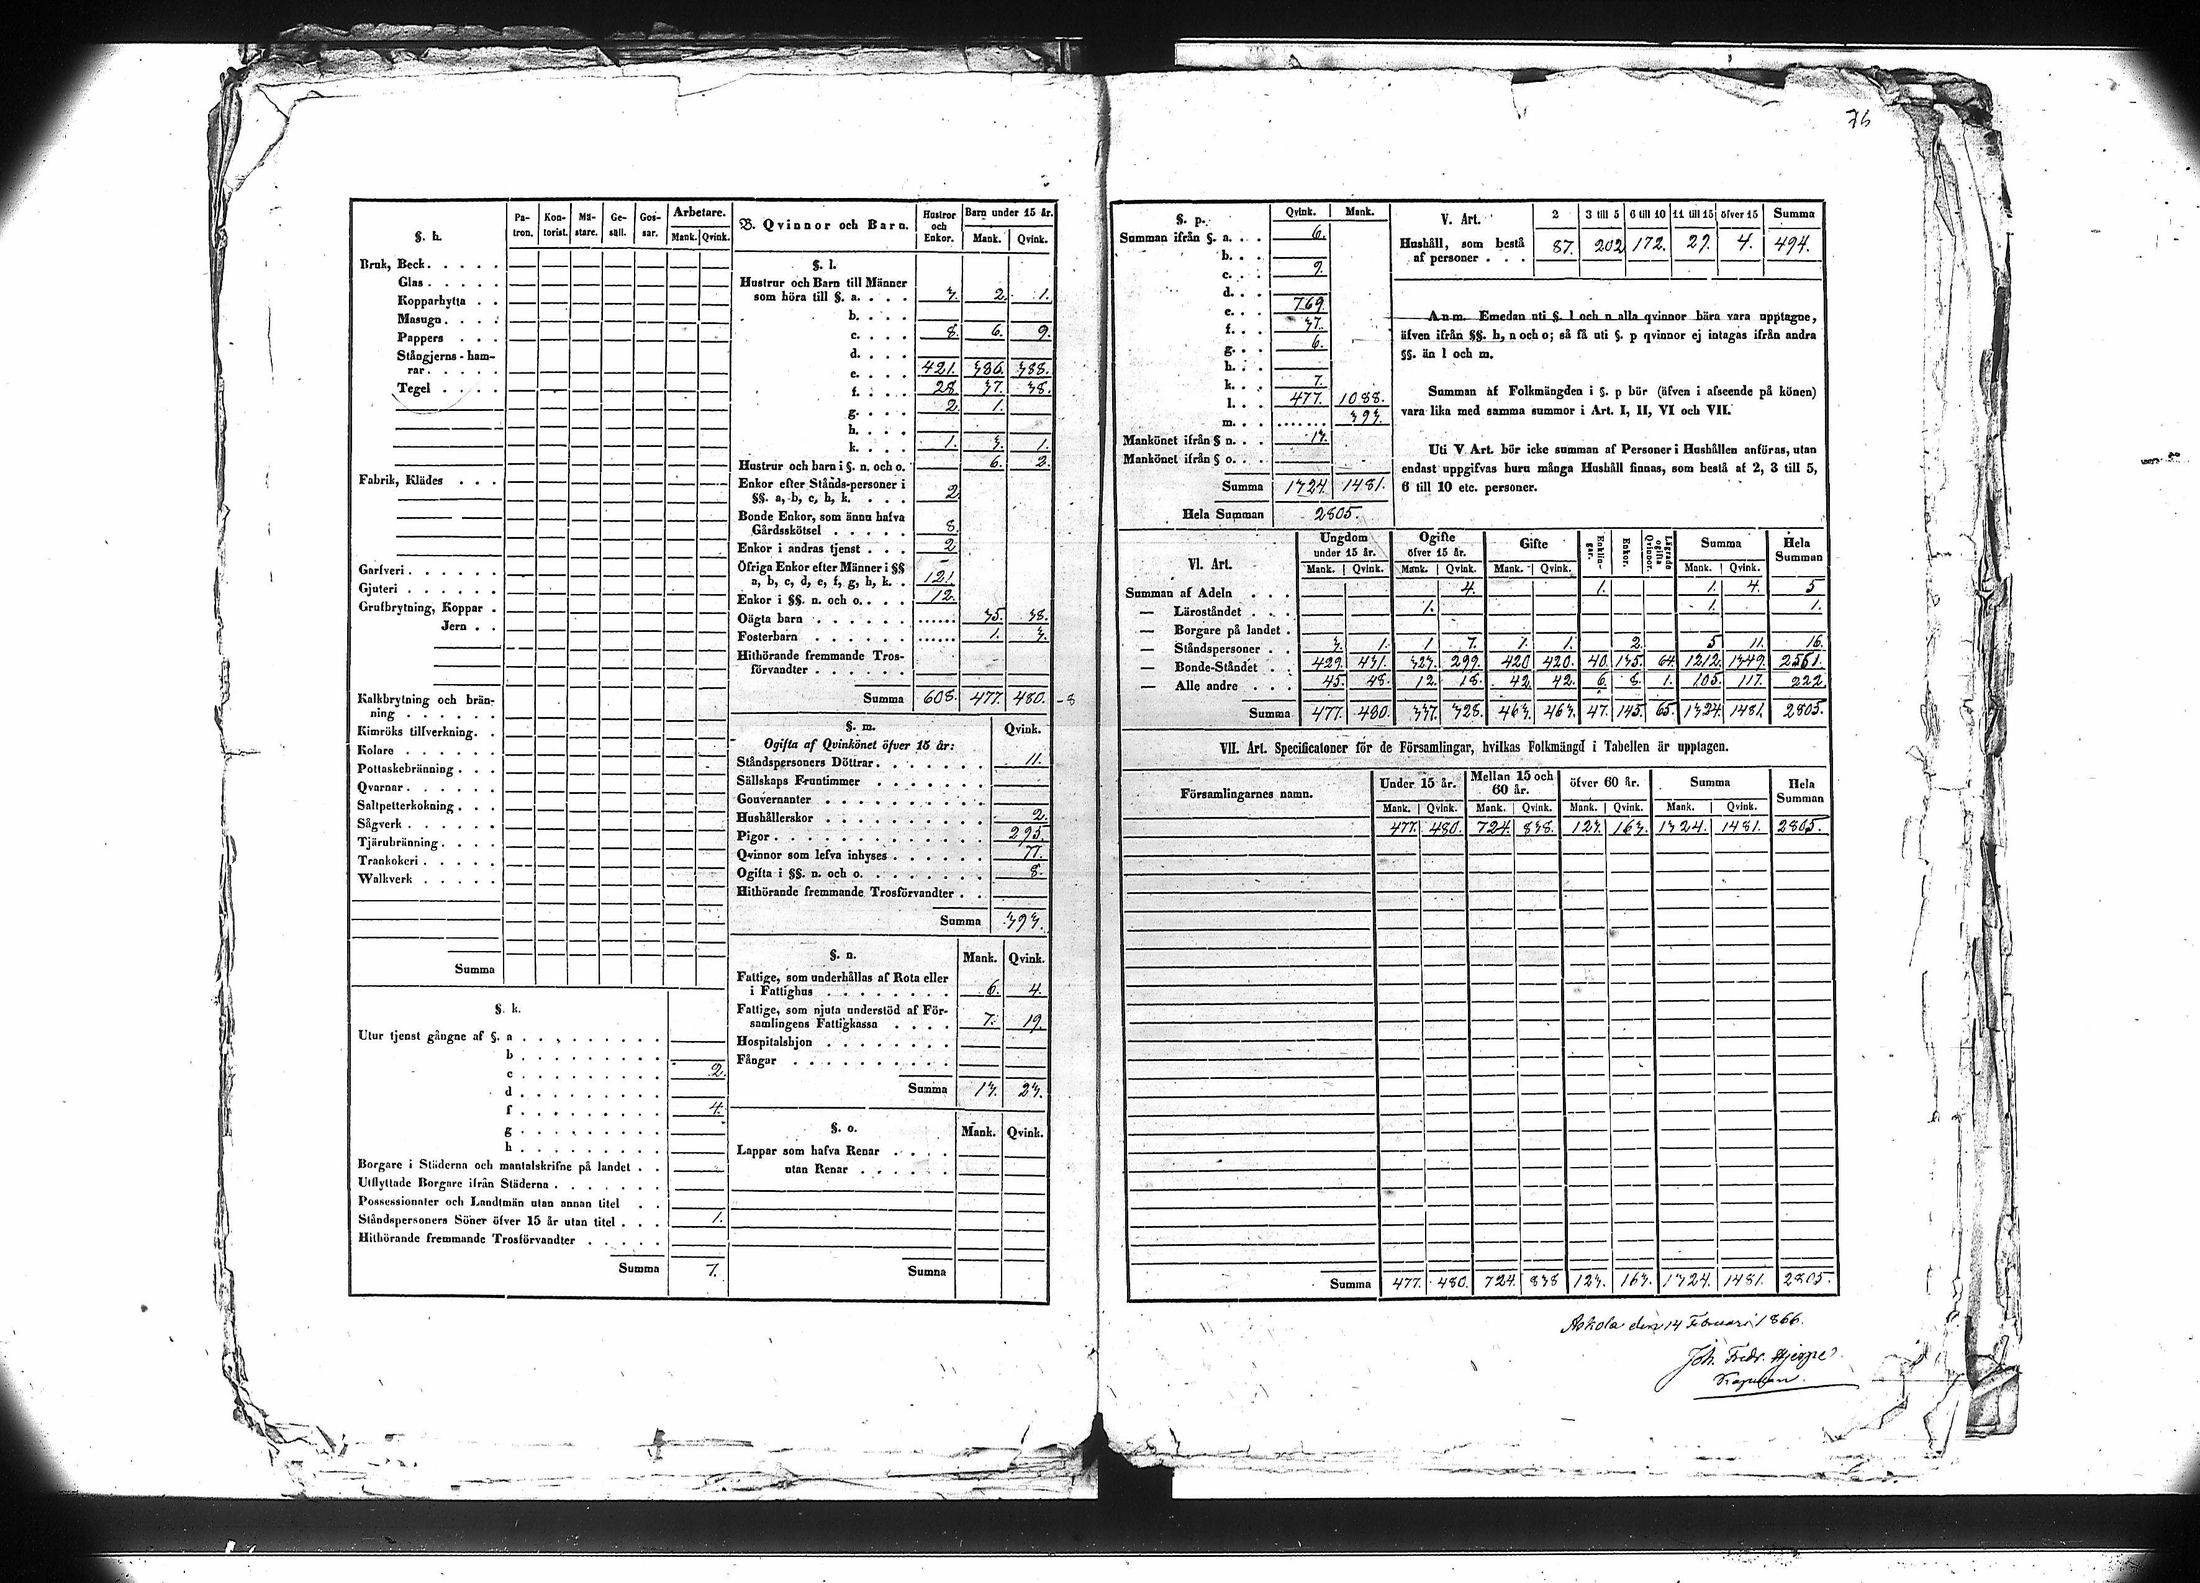 76
§. h.
Pa-tron.
Kon-torist.
Mä-stare.
Ge-säll.
Gos-sar.
Arbetare.
Mank. Qvink.
Bruk, Beck
Glas
Kopparhytta
Masugn
Pappers
Stångjerns-ham-
rar
Tegel
Fabrik, Klädes
Garfveri
Gjuteri
Grufbrytning, Koppar
Jern
Kalkbrytning och brän-
ning
Kimröks tillverkning
Kolare
Pottaskebränning
Qvarnar
Saltpetterkokning
Sågverk
Tjärubränning
Trankokeri
Walkverk
Summa
§. k.
Utur tjenst gångne af §. a
b
c 2.
d
f 4.
g
h
Borgare i Städerna och mantalskrifne på landet
Utflyttade Borgare ifrån Städerna
Possessionater och Landtmän utan annan titel
Ståndspersoners Söner öfver 15 år utan titel 1.
Hithörande fremmande Trosförvandter
Summa 7.
B. Qvinnor och Barn.
Hustror och Enkor.
Barn under 15 år.
Mank. Qvink.
§. l.
Hustrur och Barn till Männer
som höra till §. a. 3. 2. 1.
b.
c. 8. 6. 9.
d.
e. 421. 386. 388.
f. 28. 37. 38.
g. 2. 1.
h.
k. 1. 3. 1.
Hustrur och barn i §. n. och o. 6. 2.
Enkor efter Stånds-personer i
§§. a, b, c, h, k. 2.
Bonde Enkor, som ännu hafva
Gårdsskötsel 8.
Enkor i andras tjenst 2
Öfriga Enkor efter Männer i §§
a, b, c, d, e, f, g, h, k. 121.
Enkor i §§. n. och o. 12.
Oägta barn 35. 38.
Fosterbarn 1. 3.
Hithörande fremmande Tros-
förvandter
Summa 608. 477. 480. -8
§. m.
Qvink.
Ogifta af Qvinkönet öfver 15 år:
Ståndspersoners Döttrar 11.
Sällskaps Fruntimmer
Gouvernanter
Hushållerskor 2.
Pigor 295.
Qvinnor som lefva inhyses 77.
Ogifta i §§. n. och o. 8.
Hithörande fremmande Trosförvandter
Summa 393.
§. n.
Mank. Qvink.
Fattige, som underhållas af Rota eller
i Fattighus 6. 4.
Fattige, som njuta understöd af För-
samlingens Fattigkassa 7. 19.
Hospitalshjon
Fångar
Summa 13. 23.
§. o.
Mank. Qvink.
Lappar som hafva Renar
utan Renar
Summa
§. p.
Qvink. Mank.
Summan ifrån §. a. 6.
b.
c. 9.
d.
e. 769.
f. 37.
g. 6.
h.
k. 7.
l. 477. 1088.
m. 393.
Mankönet ifrån § n. 13.
Mankönet ifrån § o.
Summa 1324. 1481.
Hela Summan 2805.
V. Art.
2 3 till 5 6 till 10 11 till 15 öfver 15 Summa
Hushåll, som bestå
af personer 87. 202 172. 29. 4. 494.
Anm. Emedan uti §. l och n alla qvinnor böra vara upptagne,
äfven ifrån §§. h, n och o; så få uti §. p qvinnor ej intagas ifrån andra
§§. än l och m.
Summan af Folkmängden i §. p bör (äfven i afseende på könen)
vara lika med samma summor i Art. I, II, VI och VII.
Uti V Art. bör icke summan af Personer i Hushållen anföras, utan
endast uppgifvas huru många Hushåll finnas, som bestå af 2, 3 till 5,
6 till 10 etc. personer.
VI. Art.
Ungdom under 15 år.
Ogifte öfver 15 år.
Gifte
Enklin-gar.
Enkor.
Lägrade ogifta Qvinnor.
Summa
Hela Summan
Mank. Qvink. Mank. Qvink. Mank. Qvink. Mank. Qvink.
Summan af Adeln 4. 1. 1. 4. 5
— Läroståndet 1. 1. 1.
— Borgare på landet
— Ståndspersoner 3. 1. 1 7. 1. 1. 2. 5 11. 16.
— Bonde-Ståndet 429. 431. 323. 299. 420 420. 40. 135. 64 1212. 1349. 2561.
— Alle andre 45. 48. 12. 18. 42 42. 6. 8. 1. 105. 117. 222
Summa 477. 480. 337. 328. 463. 463. 47. 145. 65. 1324. 1481. 2805.
VII. Art. Specificationer för de Församlingar, hvilkas Folkmängd i Tabellen är upptagen.
Församlingarnes namn.
Under 15 år.
Mellan 15 och 60 år.
öfver 60 år.
Summa
Hela Summan
Mank. Qvink. Mank. Qvink. Mank. Qvink. Mank. Qvink.
477. 480. 724. 838. 123. 163. 1324. 1481. 2805.
Summa 477. 480. 724. 838 123. 163. 1324. 1481. 2805.
Askola den 14 Februari 1866.
Joh. Fredr. Hjerpe
Kapellan.